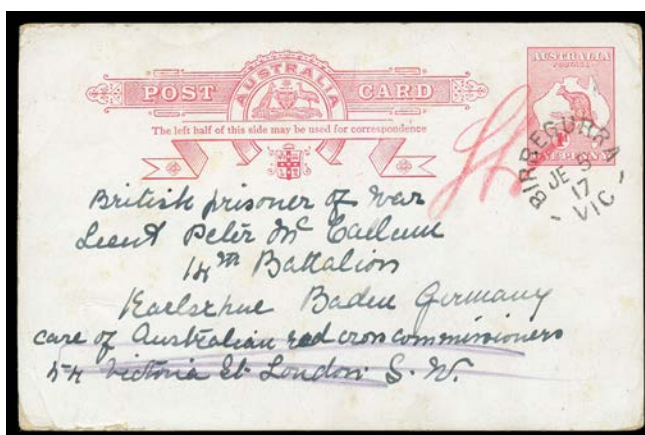 AUSTRALIA
POSTAGE
POST CARD
AUSTRALIA
The left half of this side may be used for correspondence
ONE PENNY
BIRREGURRA
JE 5
17
VIC
British prisoner of War
Lieut Peter Mc Callum
14th Battalion
Karlsrhue Baden Germany
care of Australian red cross commissioners
54 Victoria St. London S. W.